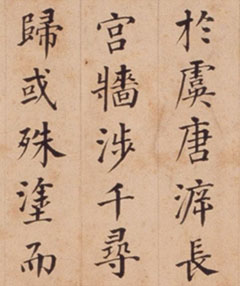 於虞唐滸長
宮牆涉千尋
歸或殊塗而